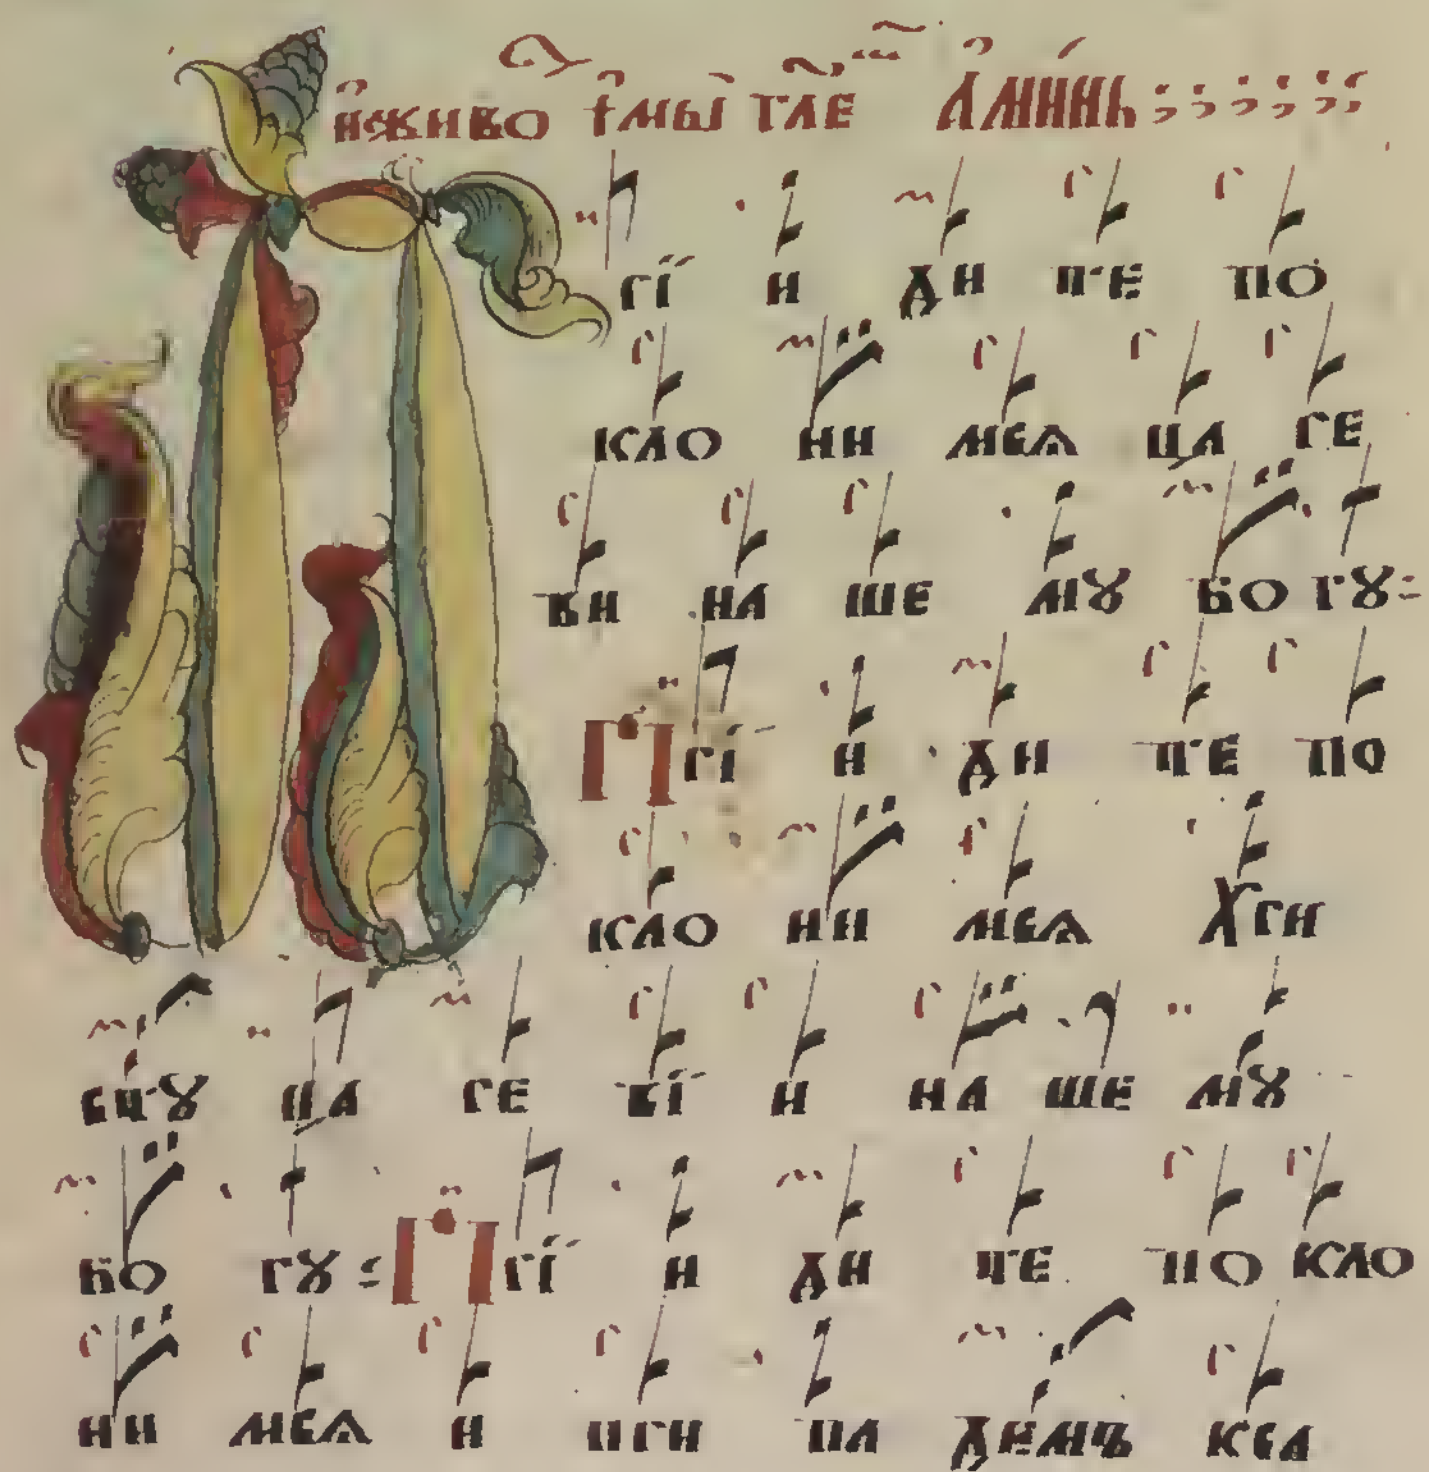 и҆живо тѡмы гл҃е А҆ми́нь
пріи ди те по
кло ни мсѧ ца ре
ви на ше мꙋ бо гꙋ
Прі и ди те по
кло ни мсѧ хри
стꙋ ца ре ві и на ше мꙋ
бо гꙋ Прі и ди те по кло
ни мсѧ и при па демъ к са